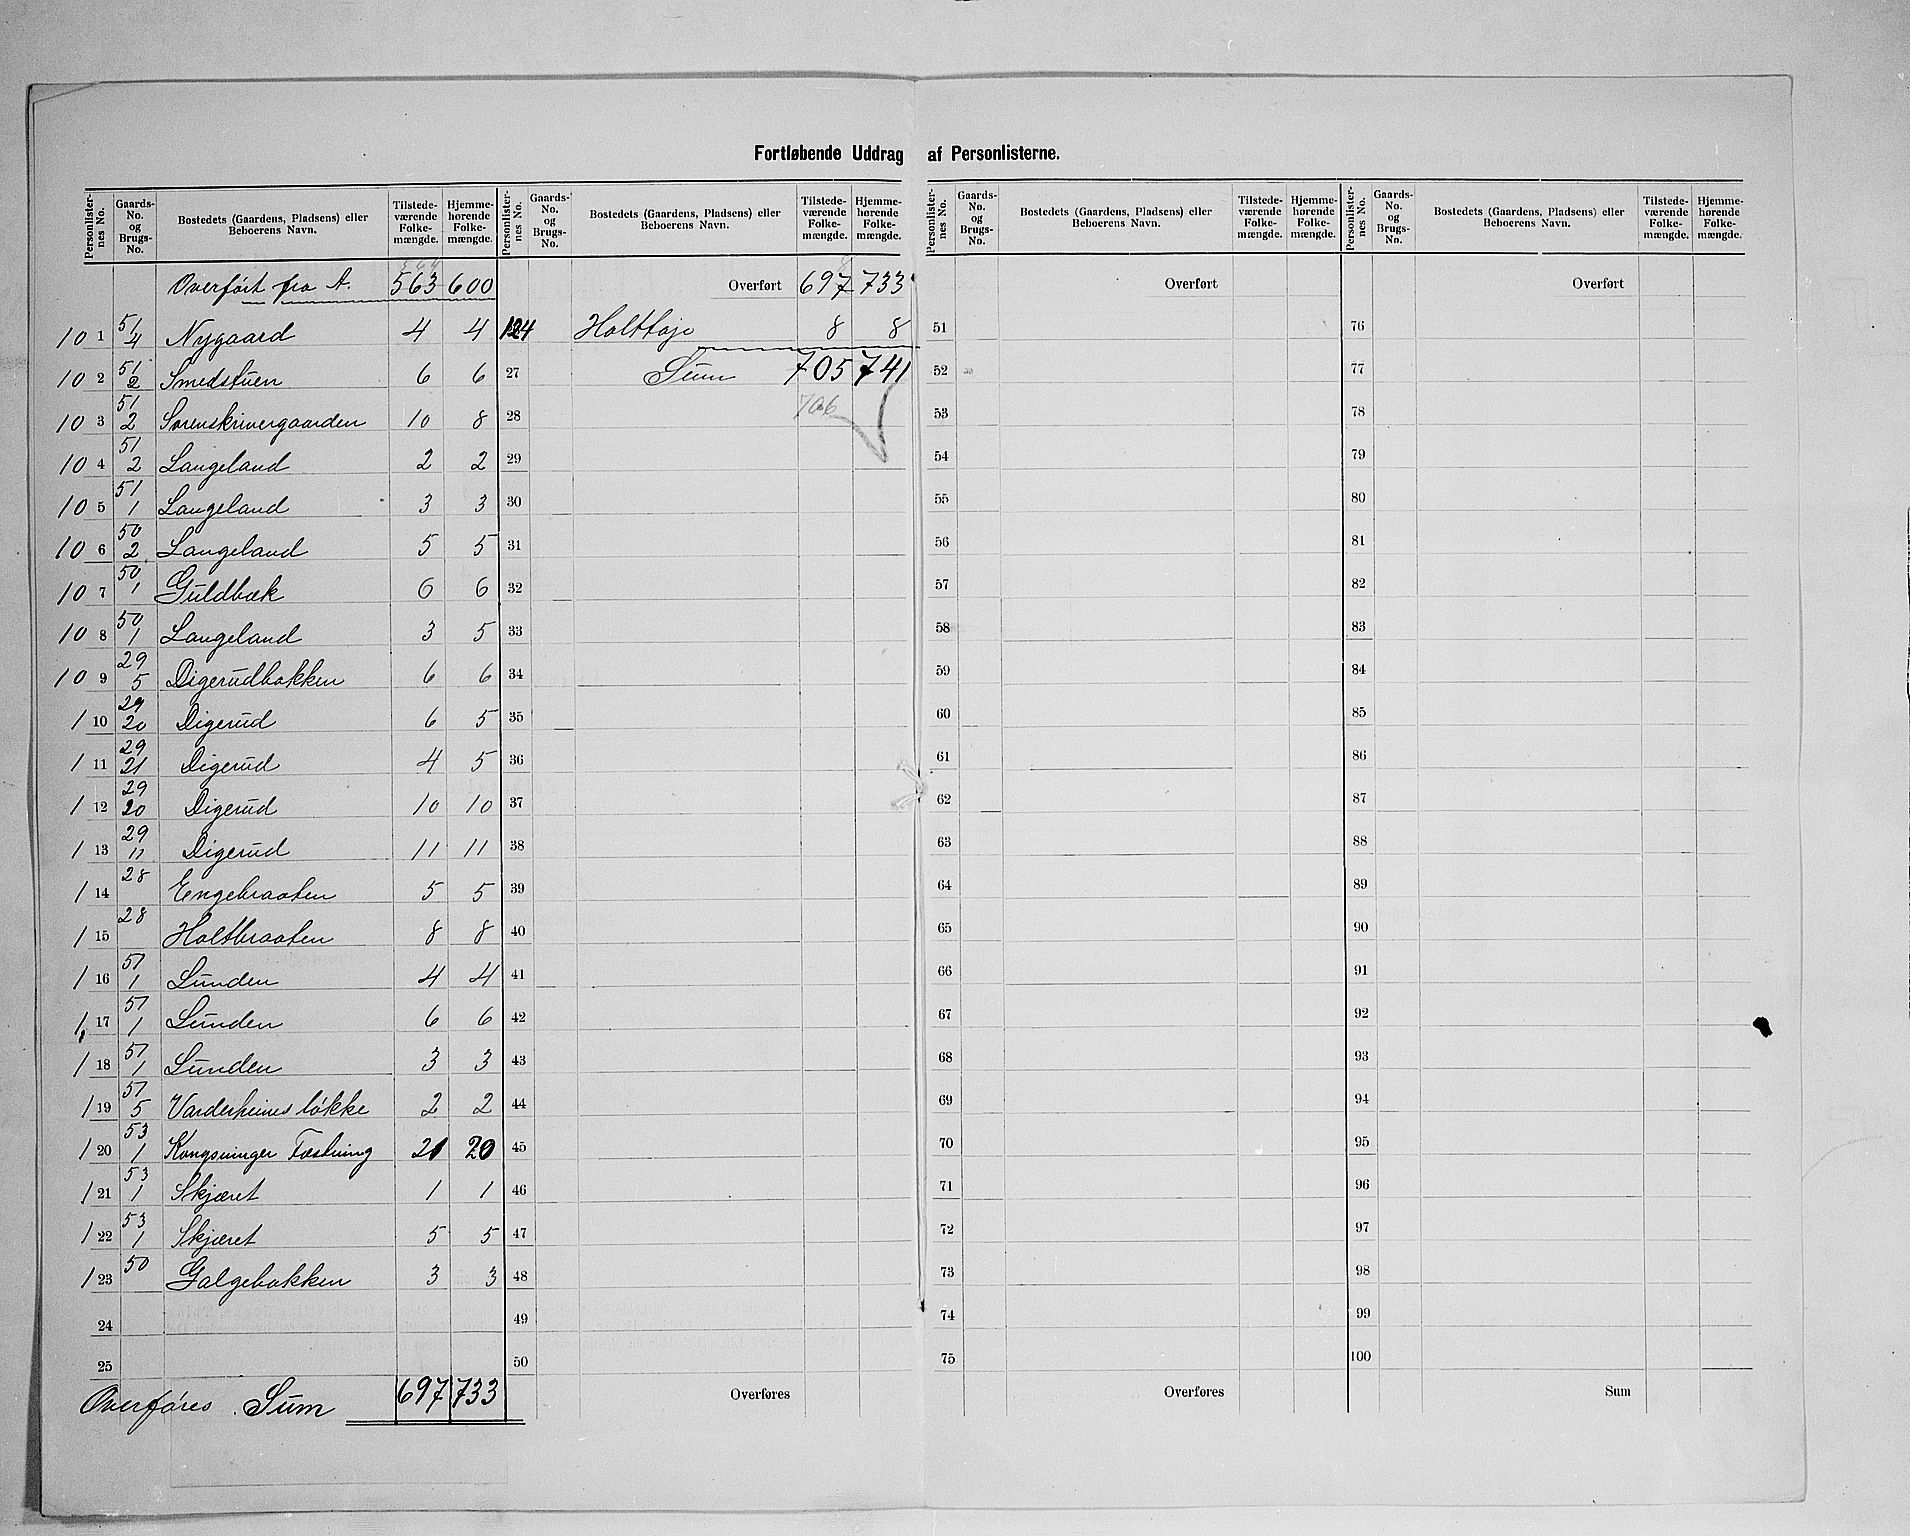 Fortløbende Uddrag af Personlisterne.
Personlister-nes No. | Gaards-No. og Brugs-No. | Bostedets (Gaardens, Pladsens) eller Beboerens Navn. | Tilstede-værende Folke-mængde. | Hjemme-hørende Folke-mængde.
Overført fra A. 563 600
101 51/4 Nygaard 4 4
102 51/2 Smedstuen 6 6
103 51/2 Sorenskrivergaarden 10 8
104 51/2 Langeland 2 2
105 51/1 Langeland 3 3
106 50/2 Langeland 5 5
107 50/1 Guldbæk 6 6
108 50/1 Langeland 3 5
109 29/5 Digerudbakken 6 6
110 29/20 Digerud 6 5
111 29/21 Digerud 4 5
112 29/20 Digerud 10 10
113 29/11 Digerud 11 11
114 28 Engebraaten 5 5
115 28 Holtbraaten 8 8
116 51/1 Lunden 4 4
117 51/1 Lunden 6 6
118 51/1 Lunden 3 3
119 51/5 løkke 2 2
120 53/1 Kongsvinger Fæstning 21 20
121 53/1 Skjæret 1 1
122 53/1 Skjæret 5 5
123 50 Galgebakken 3 3
24
25
Overføres Sum 697 733
Personlister-nes No. | Gaards-No. og Brugs-No. | Bostedets (Gaardens, Pladsens) eller Beboerens Navn. | Tilstede-værende Folke-mængde. | Hjemme-hørende Folke-mængde.
Overført 697 733
124 8 8
27 Sum 705 741
28 706
29
30
31
32
33
34
35
36
37
38
39
40
41
42
43
44
45
46
47
48
49
50
Overføres
Personlister-nes No. | Gaards-No. og Brugs-No. | Bostedets (Gaardens, Pladsens) eller Beboerens Navn. | Tilstede-værende Folke-mængde. | Hjemme-hørende Folke-mængde.
Overført
51
52
53
54
55
56
57
58
59
60
61
62
63
64
65
66
67
68
69
70
71
72
73
74
75
Overføres
Personlister-nes No. | Gaards-No. og Brugs-No. | Bostedets (Gaardens, Pladsens) eller Beboerens Navn. | Tilstede-værende Folke-mængde. | Hjemme-hørende Folke-mængde.
Overført
76
77
78
79
80
81
82
83
84
85
86
87
88
89
90
91
92
93
94
95
96
97
98
99
100
Sum